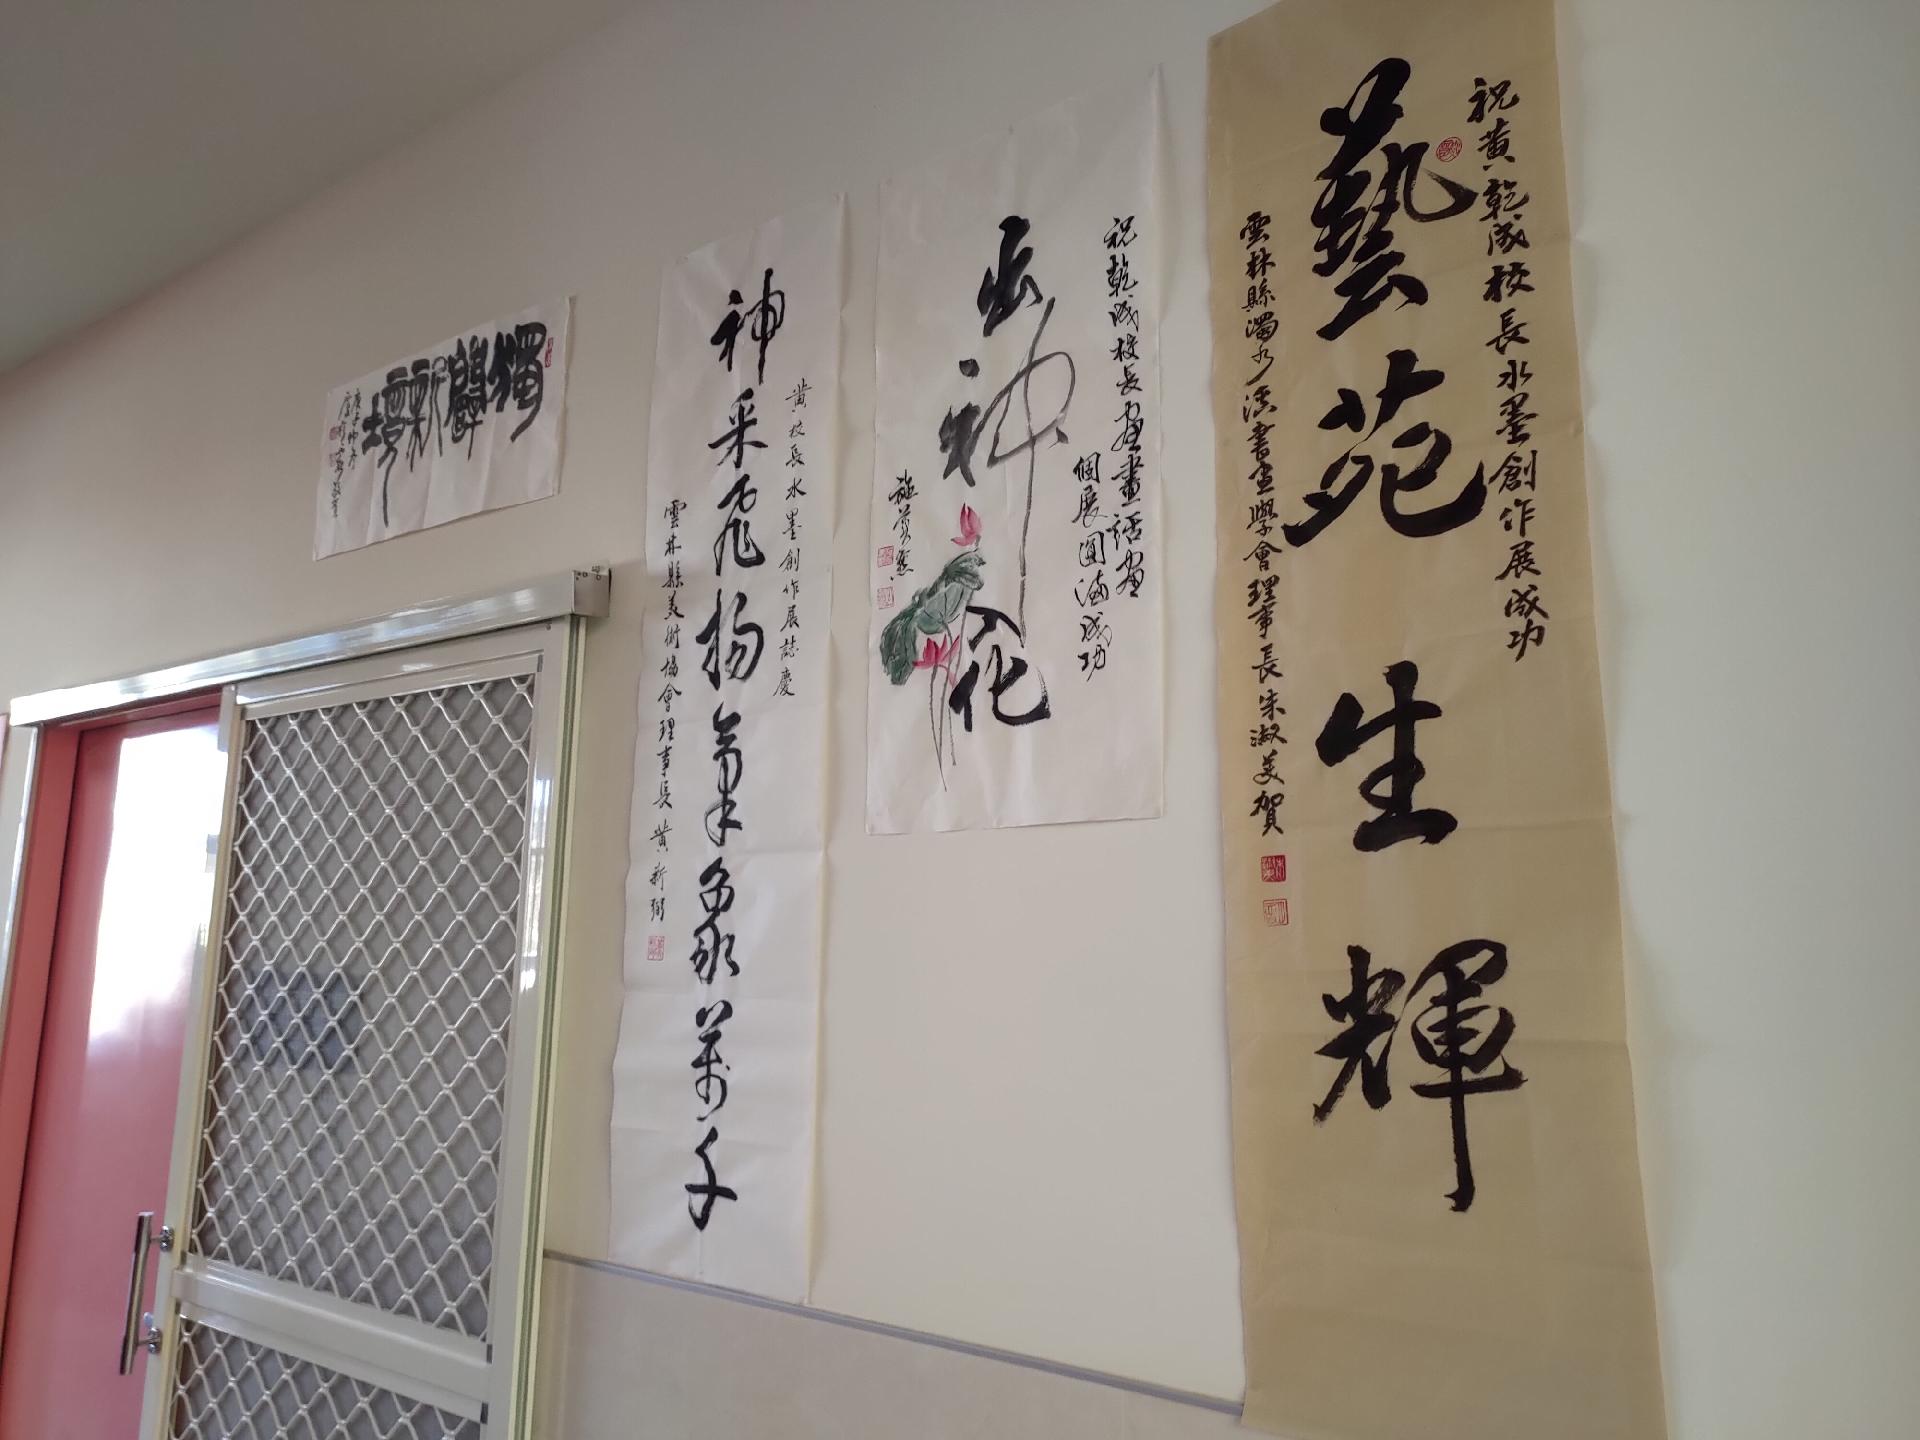 祝黃乾成校長水墨創作展成功
藝苑生輝
雲林縣濁水溪書畫學會理事長朱淑美賀
祝乾成校長畫畫話畫
個展圓滿成功
出神入化
黃校長水墨創作展誌慶
神采飛揚氣象萬千
雲林縣美術協會理事長黃新弼
獨闢新境